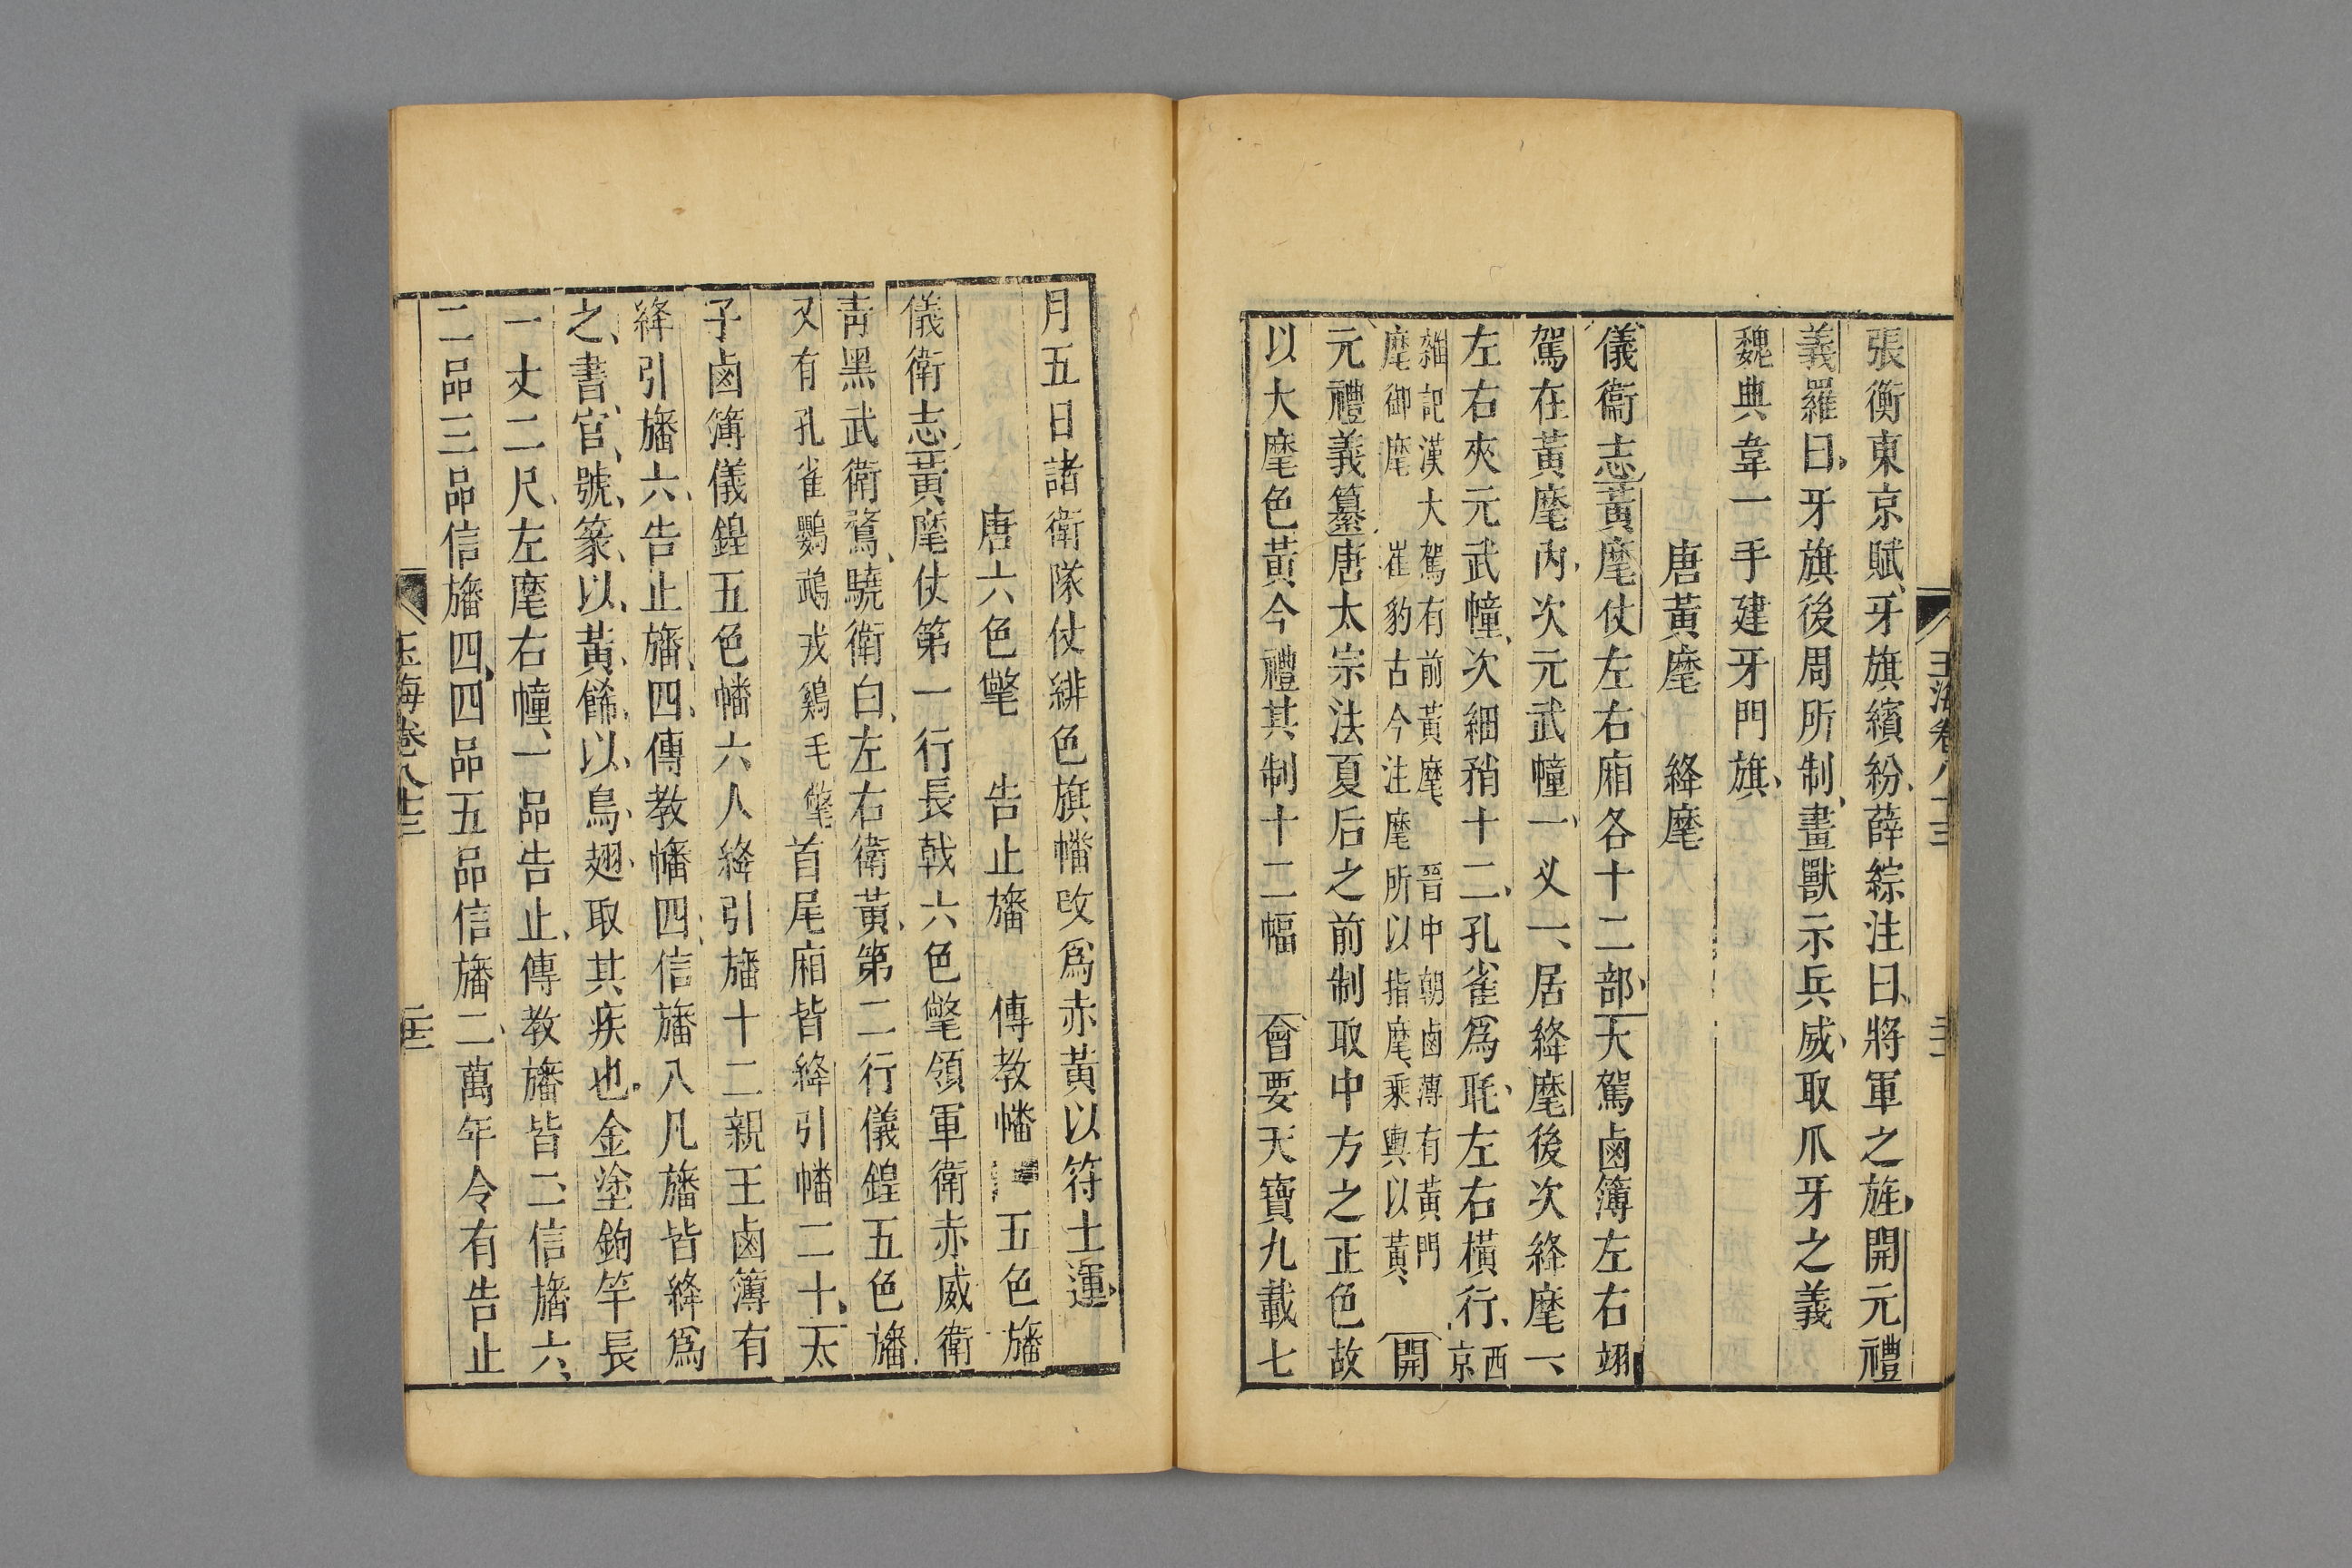 張衡東京賦、牙旗繽紛、薛綜注曰、將軍之旌、開元禮
義羅曰、牙旗後周所制、畫獸示兵威、取爪牙之義
魏典韋一手建牙門旗、
唐黃麾　絳麾
儀衞志黃麾仗左右廂各十二部、大駕鹵簿左右翊
駕在黃麾內、次元武幢一、义一、居絳麾後次絳麾一、
左右夾元武幢、次細矟十二、孔雀爲毦、左右橫行、西京
雜記漢大駕有前黃麾、晉中朝鹵薄有黃門
麾御麾　崔豹古今注麾所以指麾、乘輿以黃、開
元禮義纂唐太宗法夏后之前制取中方之正色故
以大麾色黃今禮其制十二幅　會要天寶九載七
玉海卷八十三
月五日諸衛隊仗緋色旗幡改爲赤黃以符土運、
唐六色氅　告止旛　傳教幡　五色旛
儀衛志黃麾仗第一行長戟六色氅領軍衛赤威衛
青黑武衛鶩、驍衛白、左右衛黃、第二行儀鍠五色旛、
又有孔雀鸚鵡戎鷄毛氅首尾廂皆絳引幡二十、太
子鹵簿儀鍠五色幡六人絳引旛十二親王鹵簿有
絳引旛六、告止旛、四、傳教幡四、信旛八凡旛皆絳爲
之、書、官、號、篆、以、黃、飾、以、鳥、翅、取其疾也。金塗鉤竿長
一丈二尺、左麾右幢、一品告止、傳教旛皆二、信旛六、
二品三品信旛四、四品五品信旛二、萬年令有告止
玉海卷八十三